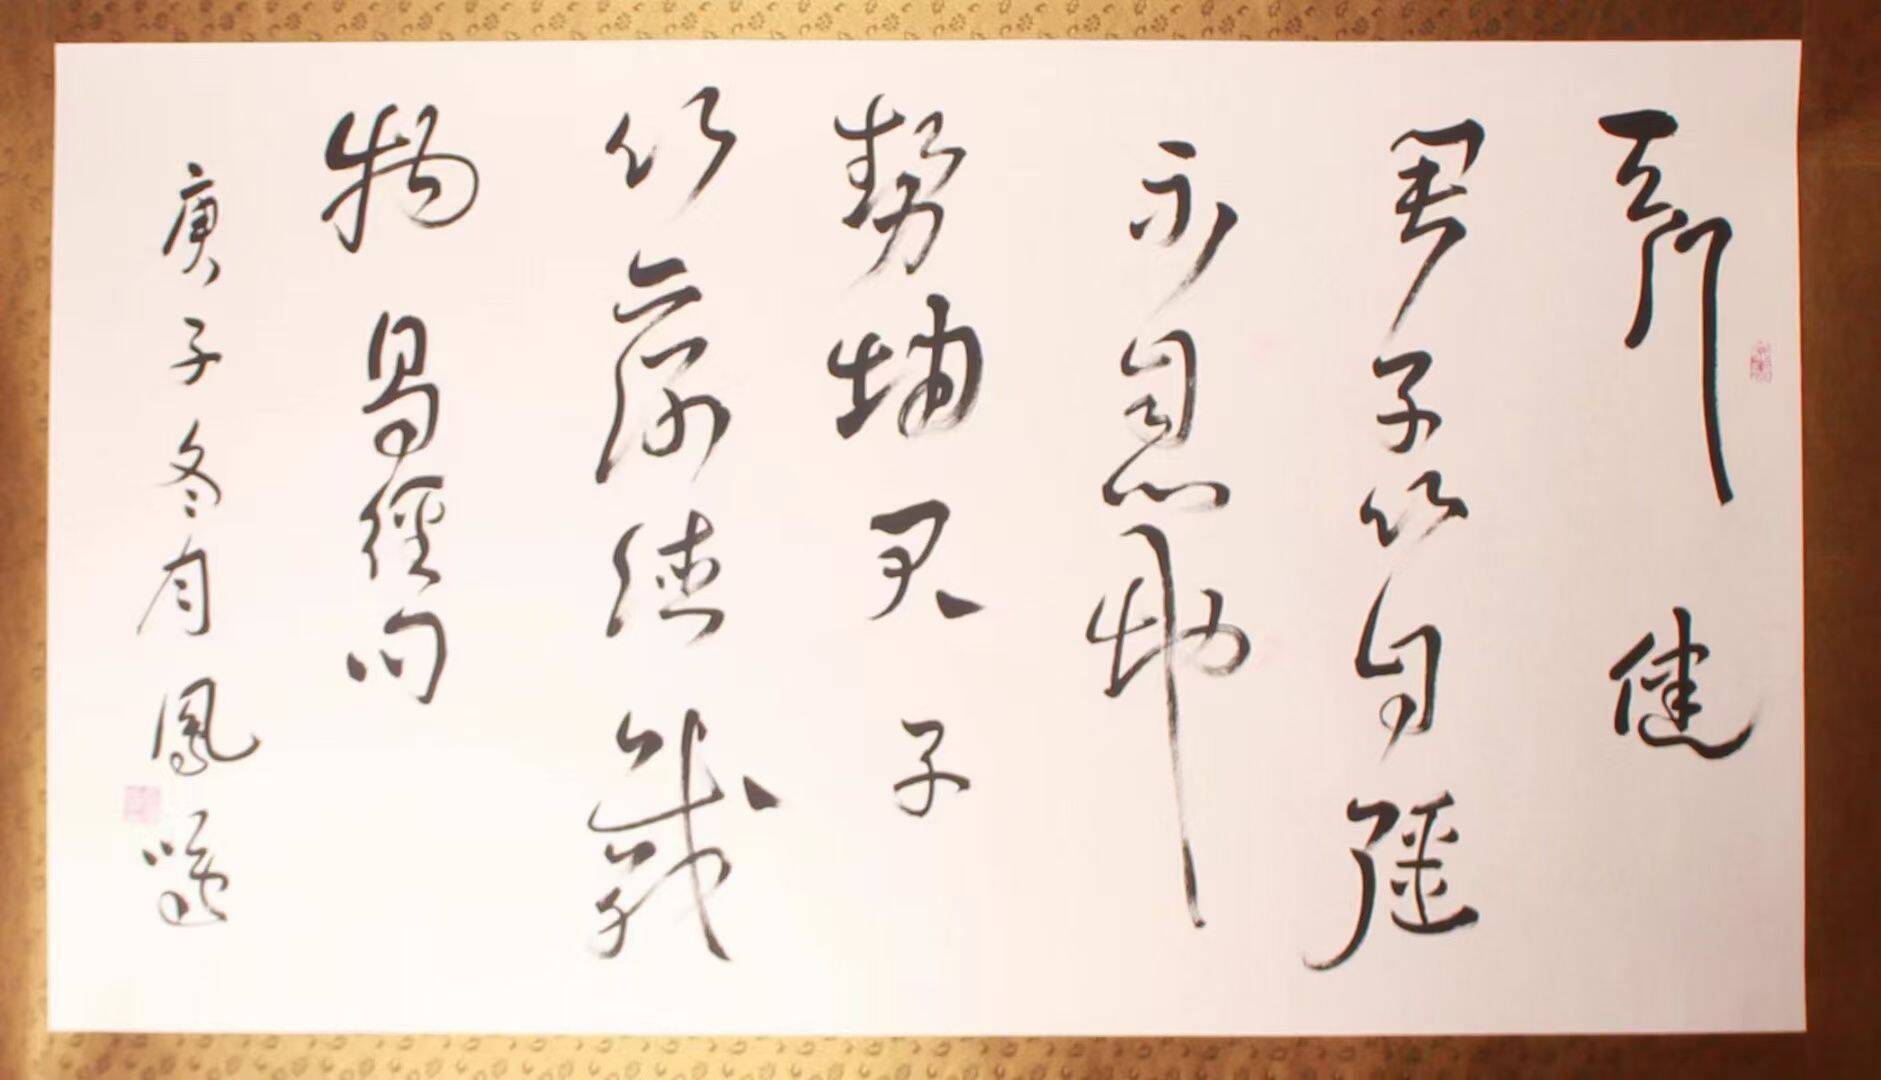 天行健
君子以自彊
不息地
勢坤君子
以厚德載
物易經句
庚子冬月鳳